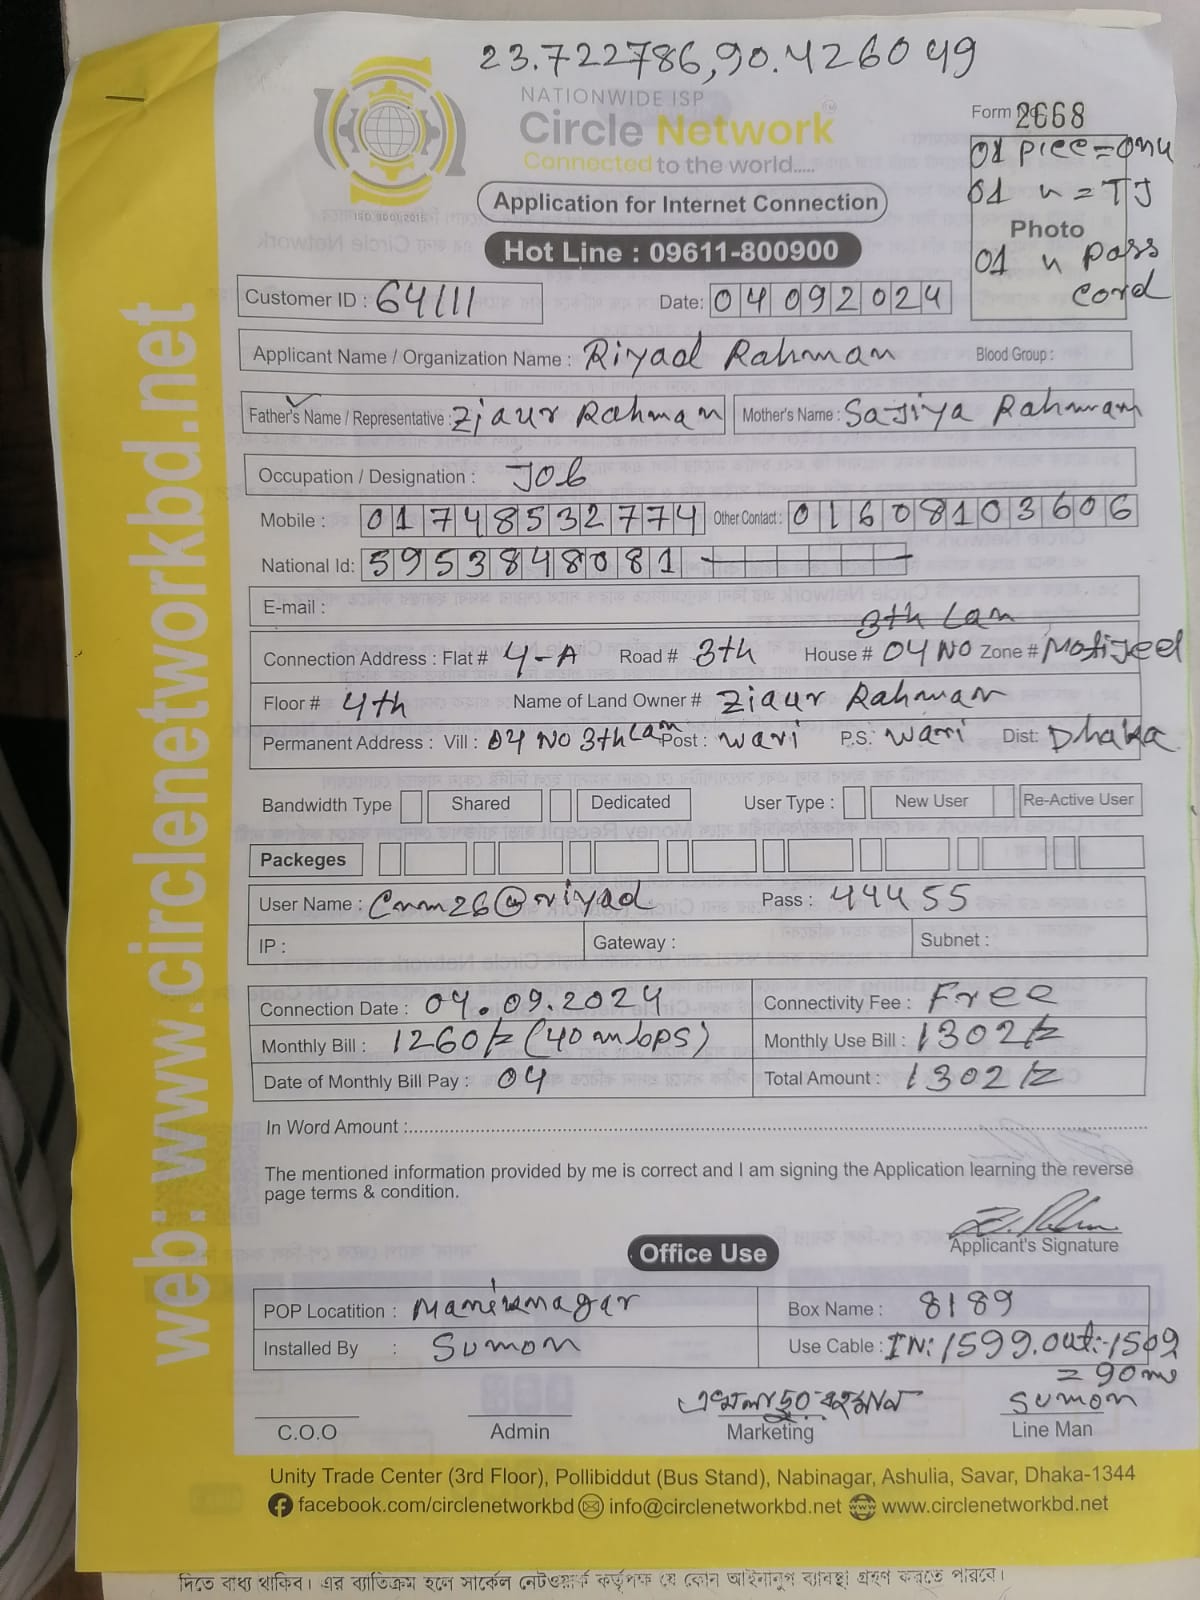 23.722786,90.426049
NATIONWIDE ISP
Circle Network
Connected to the world.....
ISO 9001:2015
Form No 2668
01 piece=onu
01 n = TJ
Photo
01 n pass
cord
Application for Internet Connection
Hot Line : 09611-800900
Customer ID : 64111 Date: 04092024
Applicant Name / Organization Name : Riyad Rahman Blood Group :
Father's Name / Representative : Ziaur Rahman Mother's Name : Sajiya Rahman
Occupation / Designation : Job
Mobile : 01748532774 Other Contact : 01608103606
National Id: 5953848081
E-mail :
3th Lan
Connection Address : Flat # 4-A Road # 3th House # 04 NO Zone # Motijeel
Floor # 4th Name of Land Owner # Ziaur Rahman
Permanent Address : Vill : 04 NO 3th Lan Post : Wari P.S: Wari Dist: Dhaka
Bandwidth Type Shared Dedicated User Type : New User Re-Active User
Packeges
User Name : Cnm26@riyad Pass : 44455
IP : Gateway : Subnet :
Connection Date : 04.09.2024 Connectivity Fee : Free
Monthly Bill : 1260/= (40 mbps) Monthly Use Bill : 1302/=
Date of Monthly Bill Pay : 04 Total Amount : 1302/=
In Word Amount :
The mentioned information provided by me is correct and I am signing the Application learning the reverse
page terms & condition.
Applicant's Signature
Office Use
POP Locatition : Maniknagar Box Name : 8189
Installed By : Sumon Use Cable : IN: 1599. Out:-1509
= 90 m
Sumon
C.O.O Admin Marketing Line Man
Unity Trade Center (3rd Floor), Pollibiddut (Bus Stand), Nabinagar, Ashulia, Savar, Dhaka-1344
facebook.com/circlenetworkbd info@circlenetworkbd.net www.circlenetworkbd.net
web: www.circlenetworkbd.net
দিতে বাধ্য থাকিব। এর ব্যতিক্রম হলে সার্কেল নেটওয়ার্ক কর্তৃপক্ষ যে কোন আইনানুগ ব্যবস্থা গ্রহণ করতে পারবে।